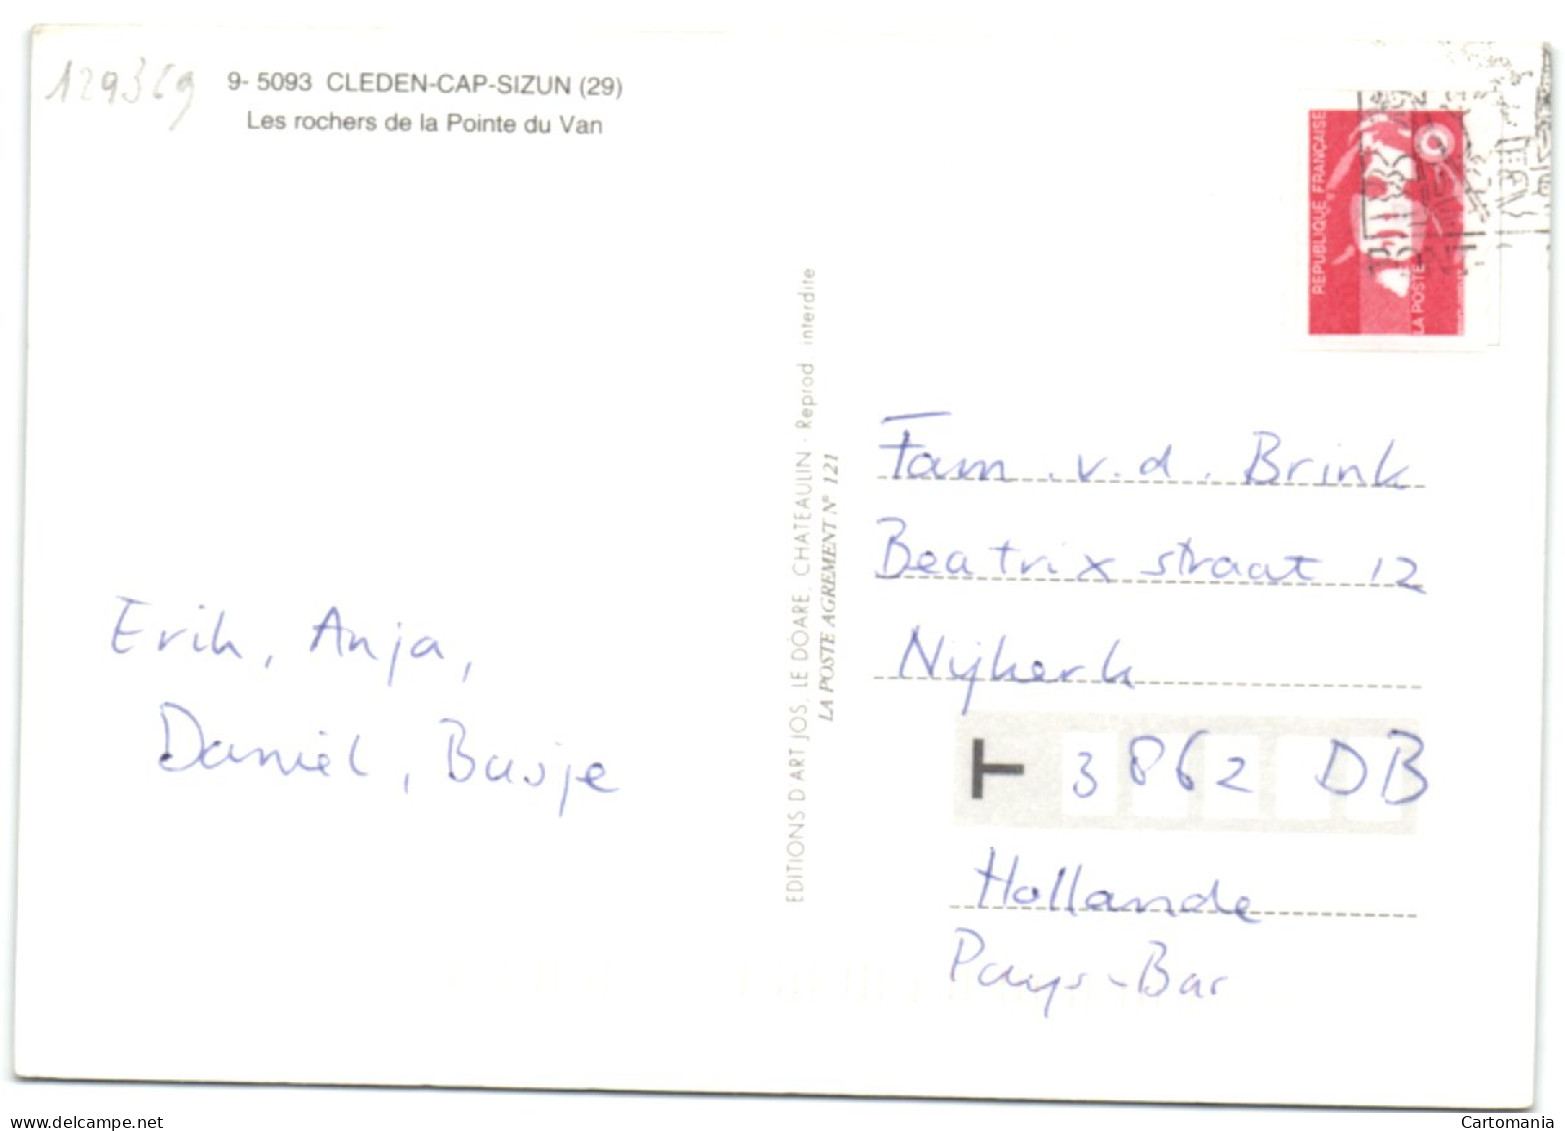 129369
9- 5093 CLEDEN-CAP-SIZUN (29)
Les rochers de la Pointe du Van
REPUBLIQUE FRANÇAISE
LA POSTE
EDITIONS D'ART JOS. LE DOARE, CHATEAULIN - Reprod. interdite
LA POSTE AGREMENT N° 121
Erik, Anja,
Daniël, Basje
Fam. v.d. Brink
Beatrix straat 12
Nijkerk
T 3862 DB
Hollande
Pays-Bas
delcampe.net
Cartomania